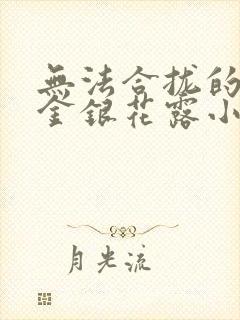 無法合拢的
金銀花露小
月光流